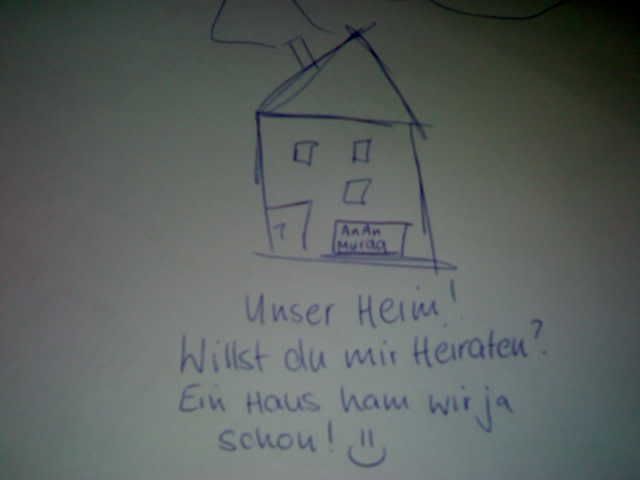 AnAn
Murad
Unser Heim!
Willst du mir Heiraten?
Ein Haus ham wir ja
schon!